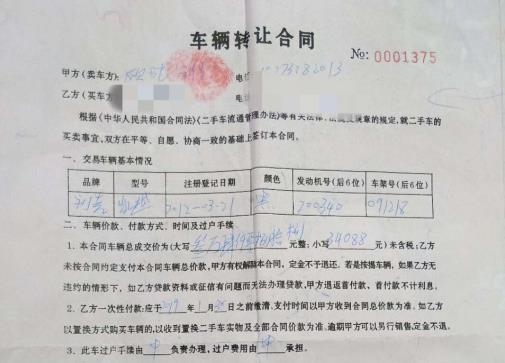 车辆转让合同
No: 0001375
甲方(卖车方):
乙方(买车方
根据《中华人民共和国合同法》《二手车流通管理办法》等有关法律、法规及规章的规定,就二手车的
买卖事宜,双方在平等、自愿、协商一致的基础上签订本合同。
一、交易车辆基本情况
品牌 型号 注册登记日期 颜色 发动机号(后6位) 车架号(后6位)
2012-03-21 700340 091218
二、车辆价款、付款方式、时间及过户手续
1. 本合同车辆总成交价为(大写 元整;小写 34088 元)未含税;乙方
未按合同约定支付本合同车辆总价款,甲方有权解除本合同,定金不予退还。若是按揭车辆,如果乙方无
违约的情形下,如乙方贷款资料或征信有问题而无法办理贷款,甲方退返首付款,首付款不计利息。
2. 乙方一次性付款:应于 年 1 月 日之前缴清,支付时间以甲方收到合同总价款为准。如乙方
以置换方式购买车辆的,以收到置换二手车实物及全部合同价款为准。逾期甲方可以另行销售,定金不退。
3. 此车过户手续由 负责办理,过户费用由 承担。